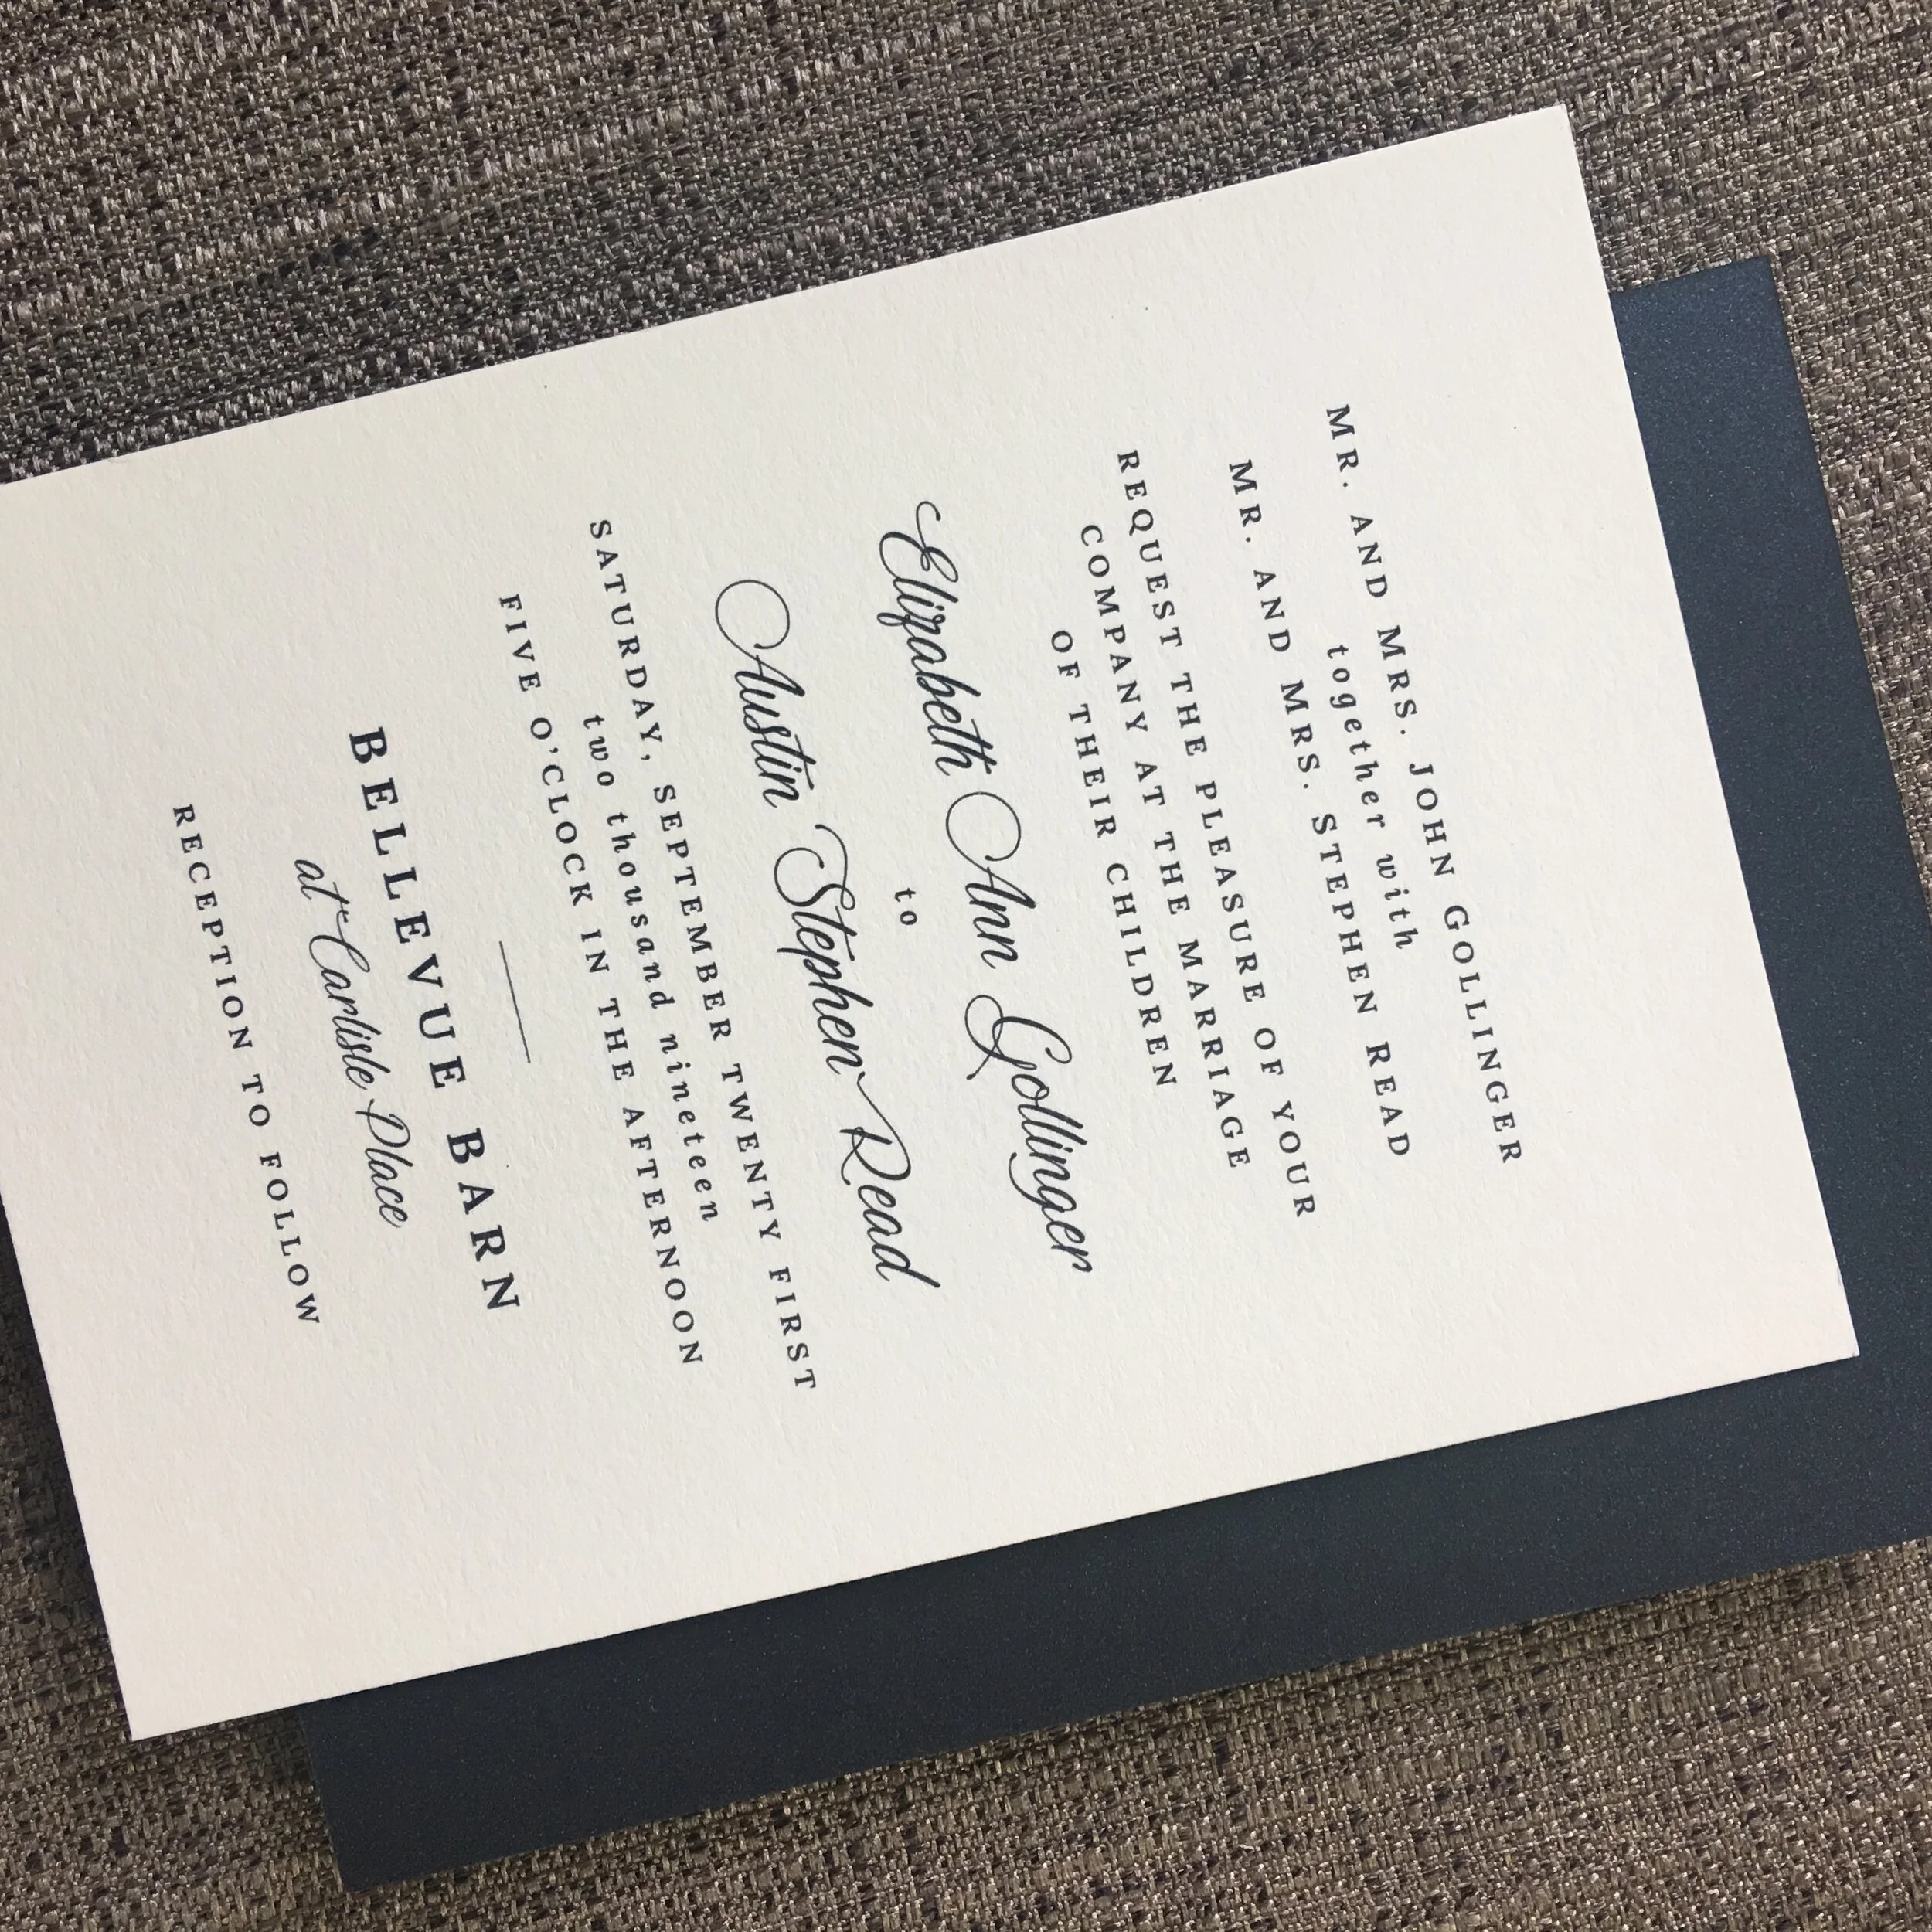 MR. AND MRS. JOHN GOLLINGER
together with
MR. AND MRS. STEPHEN READ
REQUEST THE PLEASURE OF YOUR
COMPANY AT THE MARRIAGE
OF THEIR CHILDREN
Elizabeth Ann Gollinger
to
Austin Stephen Read
SATURDAY, SEPTEMBER TWENTY FIRST
two thousand nineteen
FIVE O'CLOCK IN THE AFTERNOON
BELLEVUE BARN
at Carlisle Place
RECEPTION TO FOLLOW